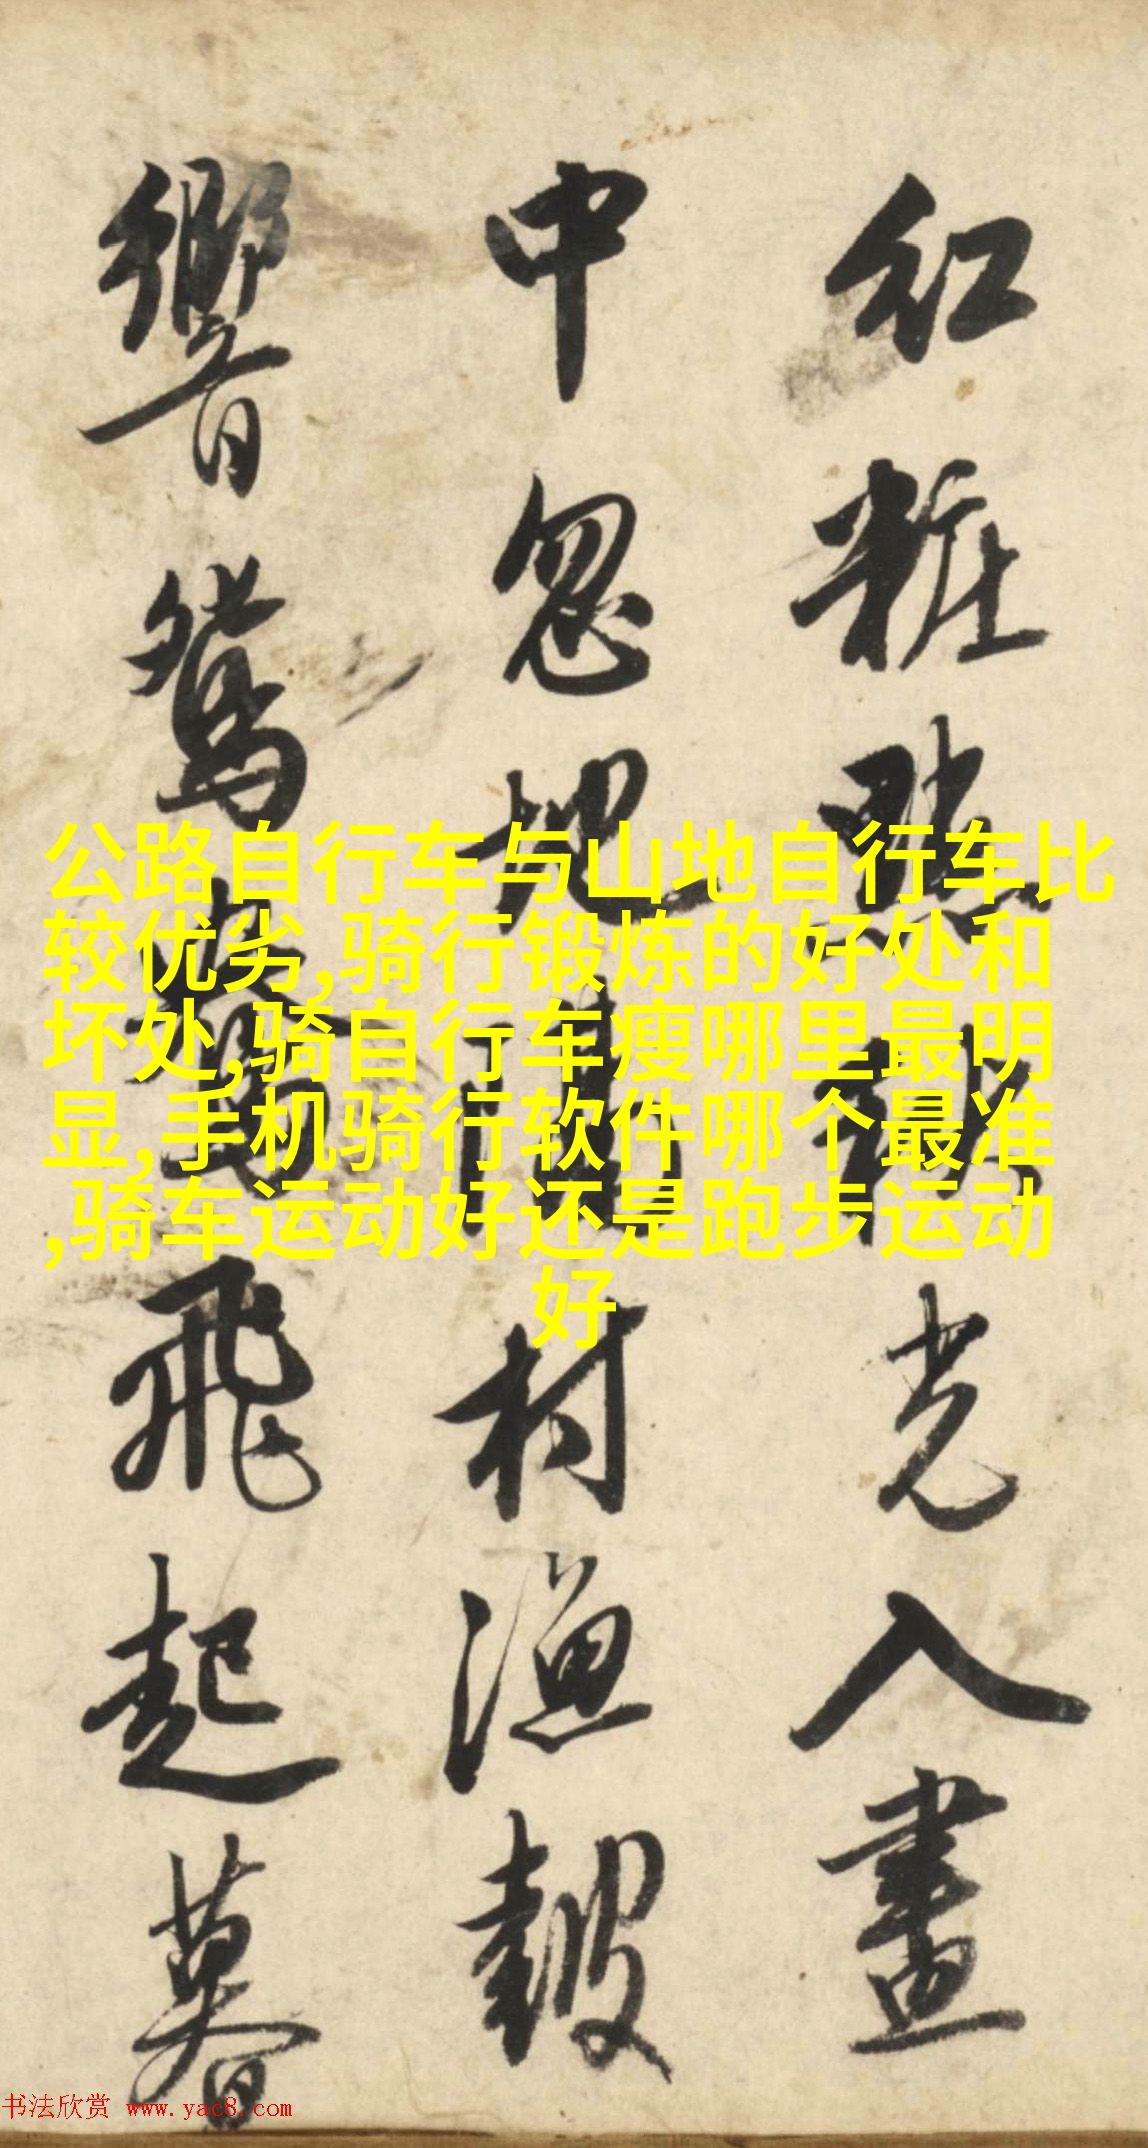 红粧照𣲖光入畫
中忽地開村漁鼓
響鴛鴦飛起暮
公路自行车与山地自行车比
较优劣,骑行锻炼的好处和
坏处,骑自行车瘦哪里最明
显,手机骑行软件哪个最准
,骑车运动好还是跑步运动
好
书法欣赏 www.yac8.com